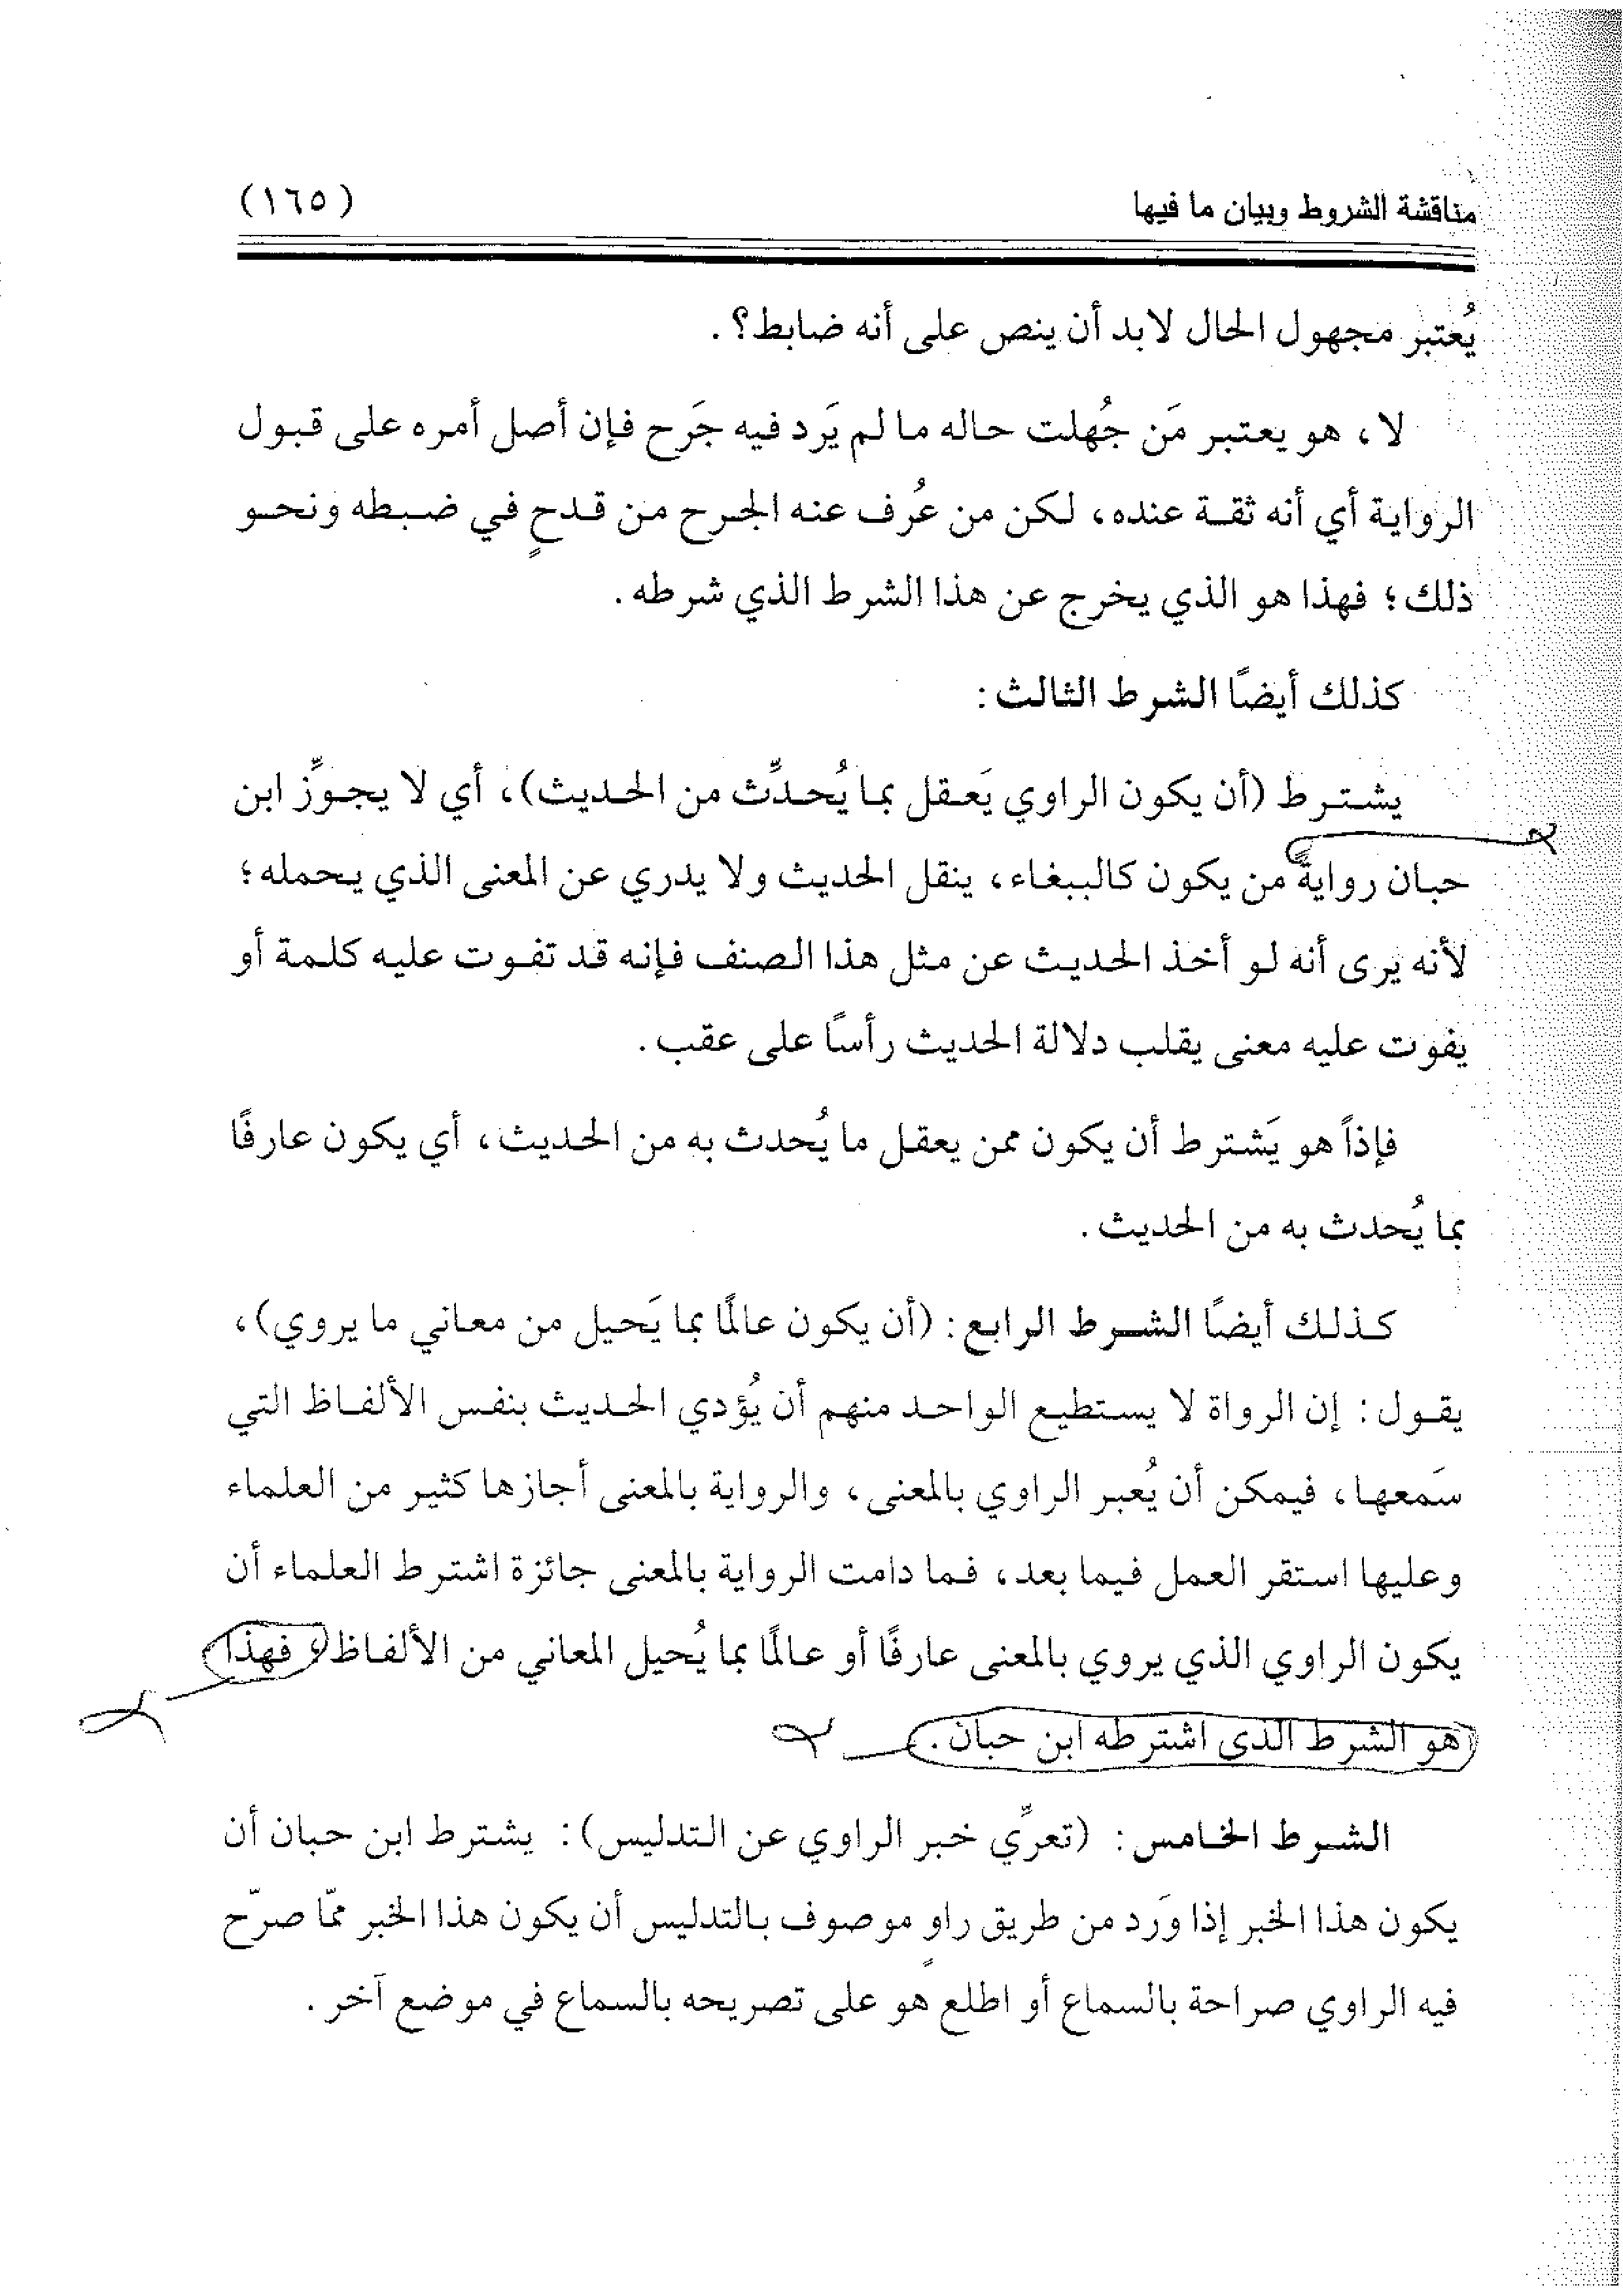 مناقشة الشروط وبيان ما فيها (١٦٥)
يُعتبر مجهول الحال لابد أن ينص على أنه ضابط؟ .
لا، هو يعتبر مَن جُهلت حاله ما لم يَرد فيه جَرح فإن أصل أمره على قبول
الرواية أي أنه ثقة عنده، لكن من عُرف عنه الجرح من قدحٍ في ضبطه ونحو
ذلك؛ فهذا هو الذي يخرج عن هذا الشرط الذي شرطه .
كذلك أيضًا الشرط الثالث :
يشترط (أن يكون الراوي يَعقل بما يُحدِّث من الحديث)، أي لا يجوِّز ابن
حبان روايةً من يكون كالببغاء، ينقل الحديث ولا يدري عن المعنى الذي يحمله؛
لأنه يرى أنه لو أخذ الحديث عن مثل هذا الصنف فإنه قد تفوت عليه كلمة أو
يفوت عليه معنى يقلب دلالة الحديث رأسًا على عقب .
فإذاً هو يَشترط أن يكون ممن يعقل ما يُحدث به من الحديث، أي يكون عارفًا
بما يُحدث به من الحديث .
كذلك أيضًا الشرط الرابع : (أن يكون عالمًا بما يَحيل من معاني ما يروي)،
يقول : إن الرواة لا يستطيع الواحد منهم أن يُؤدي الحديث بنفس الألفاظ التي
سَمعها، فيمكن أن يُعبر الراوي بالمعنى، والرواية بالمعنى أجازها كثير من العلماء
وعليها استقر العمل فيما بعد، فما دامت الرواية بالمعنى جائزة اشترط العلماء أن
يكون الراوي الذي يروي بالمعنى عارفًا أو عالمًا بما يُحيل المعاني من الألفاظ، فهذا
هو الشرط الذي اشترطه ابن حبان .
الشرط الخامس : (تعرِّي خبر الراوي عن التدليس) : يشترط ابن حبان أن
يكون هذا الخبر إذا وَرد من طريق راوٍ موصوف بالتدليس أن يكون هذا الخبر ممّا صرّح
فيه الراوي صراحة بالسماع أو اطلع هو على تصريحه بالسماع في موضع آخر .